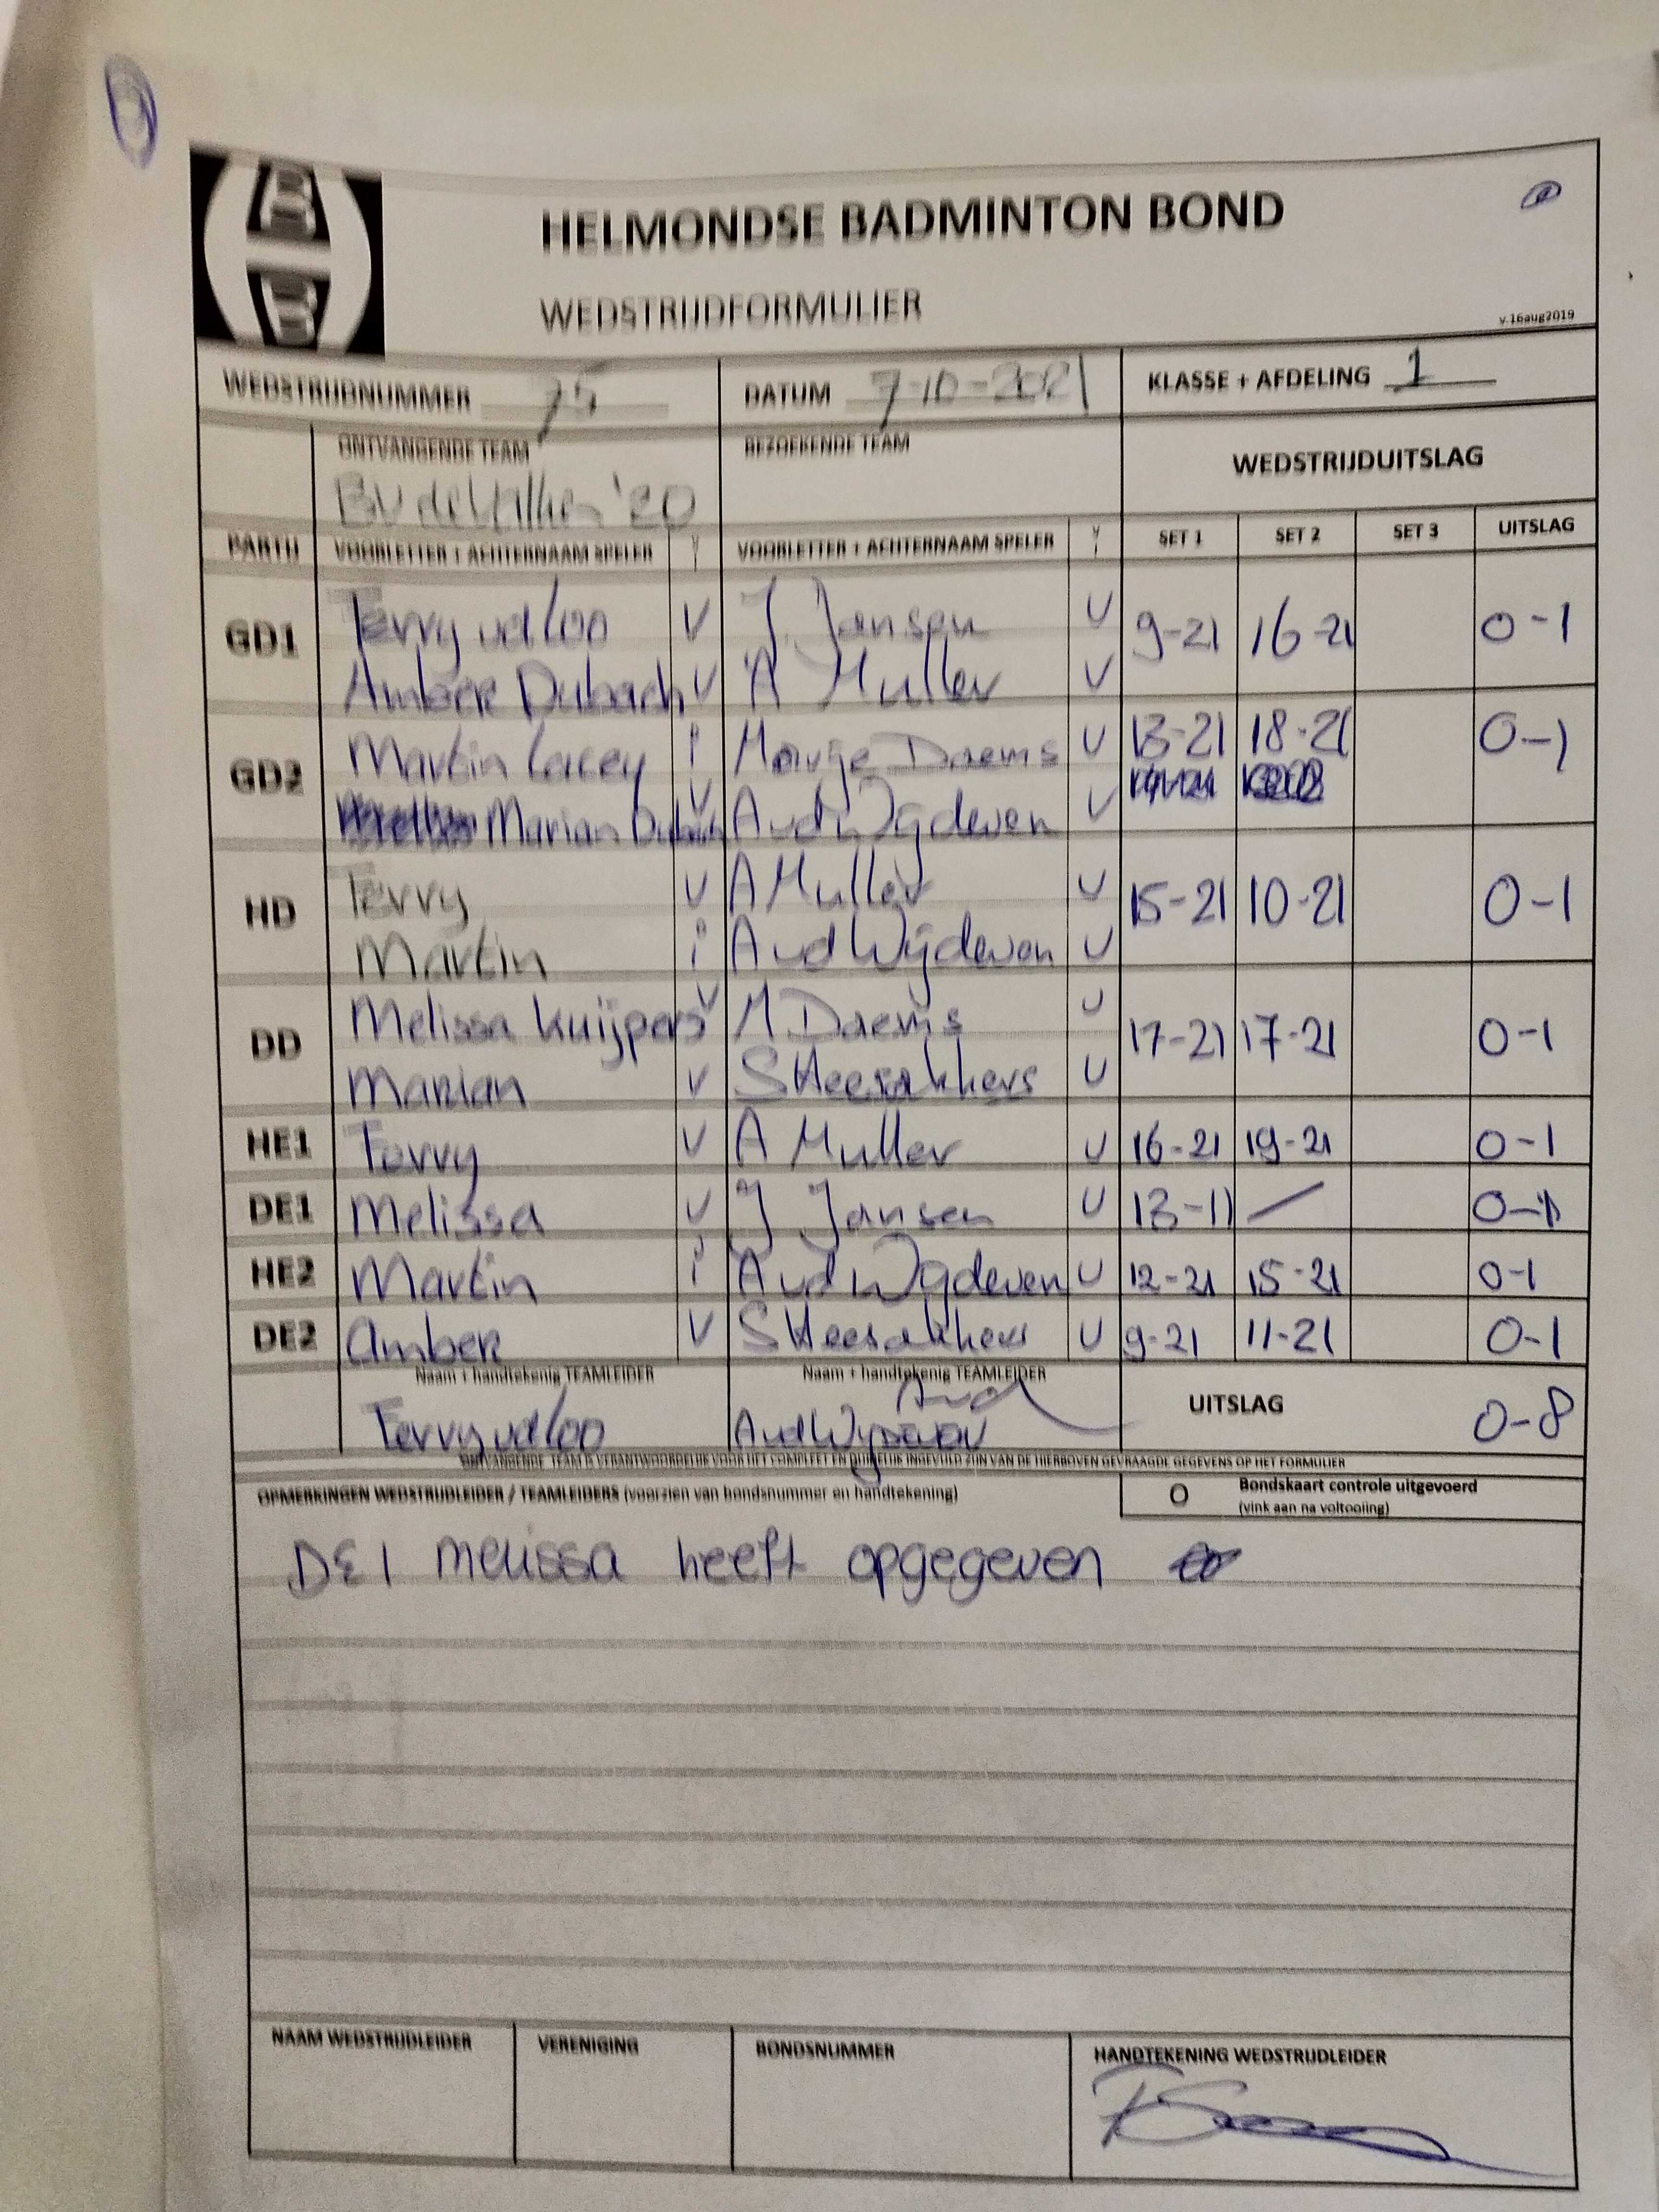 HELMONDSE BADMINTON BOND
WEDSTRIJDFORMULIER
v.16aug2019
WEDSTRIJDNUMMER 75 DATUM 7-10-2021 KLASSE + AFDELING 1
ONTVANGENDE TEAM BEZOEKENDE TEAM WEDSTRIJDUITSLAG
BV '20
PARTIJ VOORLETTER + ACHTERNAAM SPELER VOORLETTER + ACHTERNAAM SPELER SET 1 SET 2 SET 3 UITSLAG
GD1 Terry vd Loo V J Jansen V 9-21 16-21 0-1
Amber Dubach V A Muller V
GD2 Martin Lacey i Daems V 13-21 18-21 0-1
Marian Dubach V A vd Wijdeven V
HD Terry V A Muller V 15-21 10-21 0-1
Martin i A vd Wijdeven V
DD Melissa Kuijpers V M Daems V 17-21 17-21 0-1
Marian V S Heesakkers V
HE1 Terry V A Muller V 16-21 19-21 0-1
DE1 Melissa V J Jansen V 13-11 — 0-1
HE2 Martin i A vd Wijdeven V 12-21 15-21 0-1
DE2 Amber V S Heesakkers V 9-21 11-21 0-1
Naam + handtekenig TEAMLEIDER Naam + handtekenig TEAMLEIDER UITSLAG 0-8
Terry vd Loo A vd Wijdeven
ONTVANGENDE TEAM IS VERANTWOORDELIJK VOOR HET COMPLEET EN DUIDELIJK INGEVULD ZIJN VAN DE HIERBOVEN GEVRAAGDE GEGEVENS OP HET FORMULIER
OPMERKINGEN WEDSTRIJDLEIDER / TEAMLEIDERS (voorzien van bondsnummer en handtekening) O Bondskaart controle uitgevoerd
(vink aan na voltooiing)
DE1 Melissa heeft opgegeven
NAAM WEDSTRIJDLEIDER VERENIGING BONDSNUMMER HANDTEKENING WEDSTRIJDLEIDER